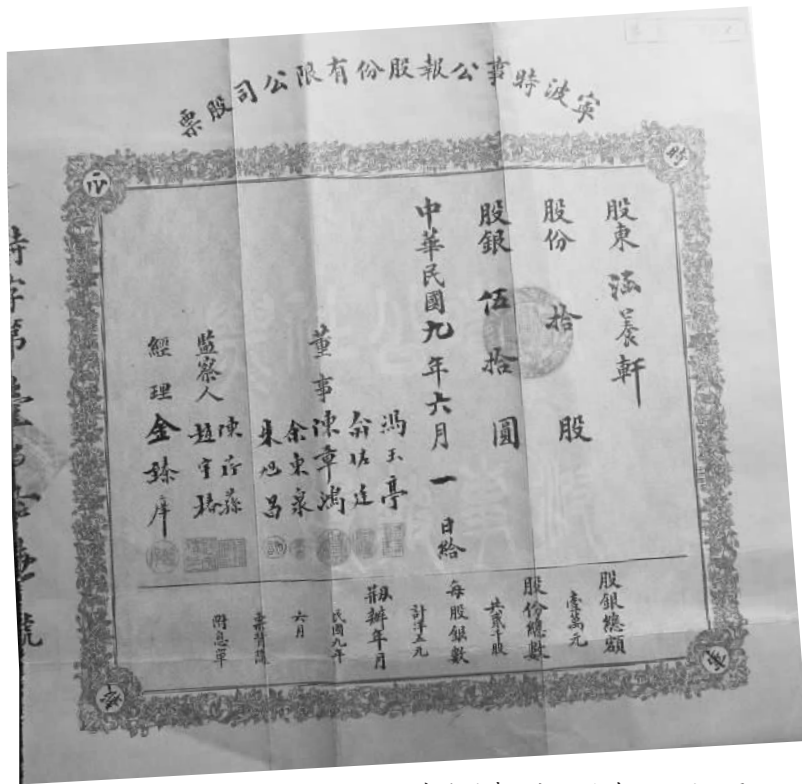 寧波時事公報股份有限公司股票
股東 涵養軒
股份 拾 股
股銀 伍拾圓
中華民國九年六月一日給
董事
馮玉亭
俞佐廷
陳章鴻
余東泉
朱旭昌
監察人
陳蓀
趙宇椿
經理 金臻庠
股銀總額
壹萬元
股份總數
共貳千股
每股銀數
計洋五元
剏辦年月
民國九年
六月
附息單
時字第壹
號